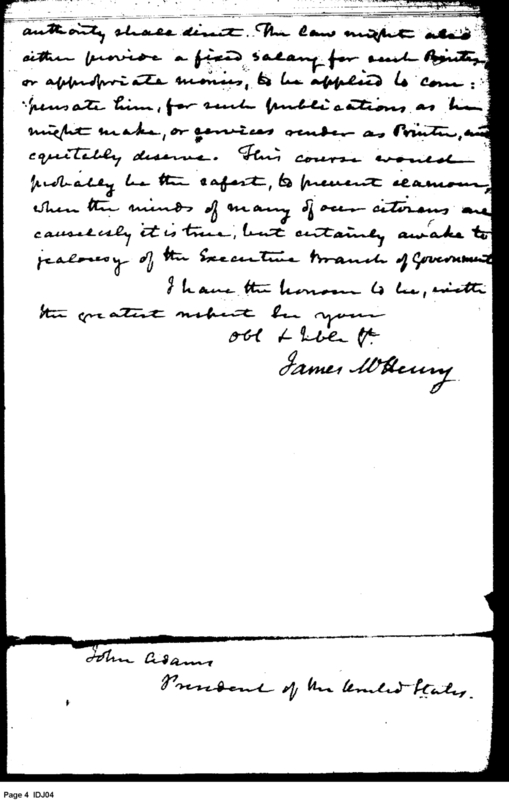 authority shall direct. The law might also
either provide a fixed salary for such Printer,
or appropriate monies, to be applied to com:
pensate him, for such publications as he
might make, or services render as Printer, and
equitably deserve. This course would
probably be the safest, to prevent clamour,
when the minds of many of our citizens are
causelessly it is true, but certainly awake to
jealousy of the Executive Branch of Government
I have the honour to be, with
the greatest respect Sir your
obt & hble St.
James McHenry
John Adams
President of the United States.
Page 4 IDJ04